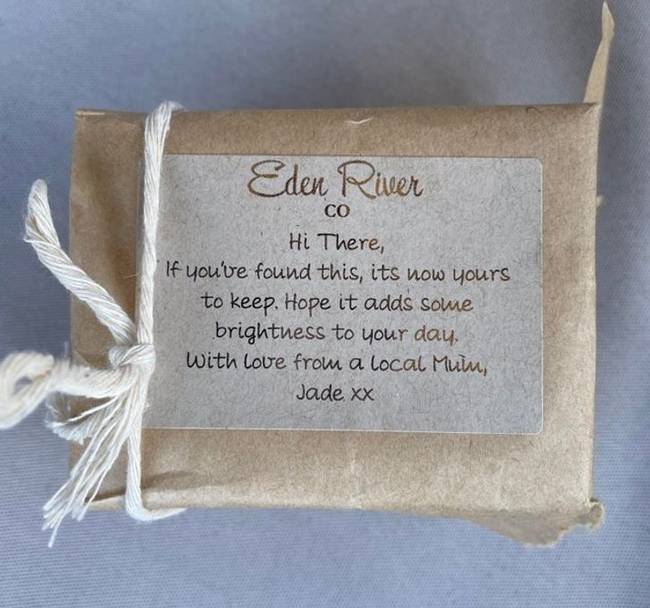 Eden River
CO
Hi There,
If you've found this, its now yours
to keep. Hope it adds some
brightness to your day.
With love from a local Mum,
Jade xx